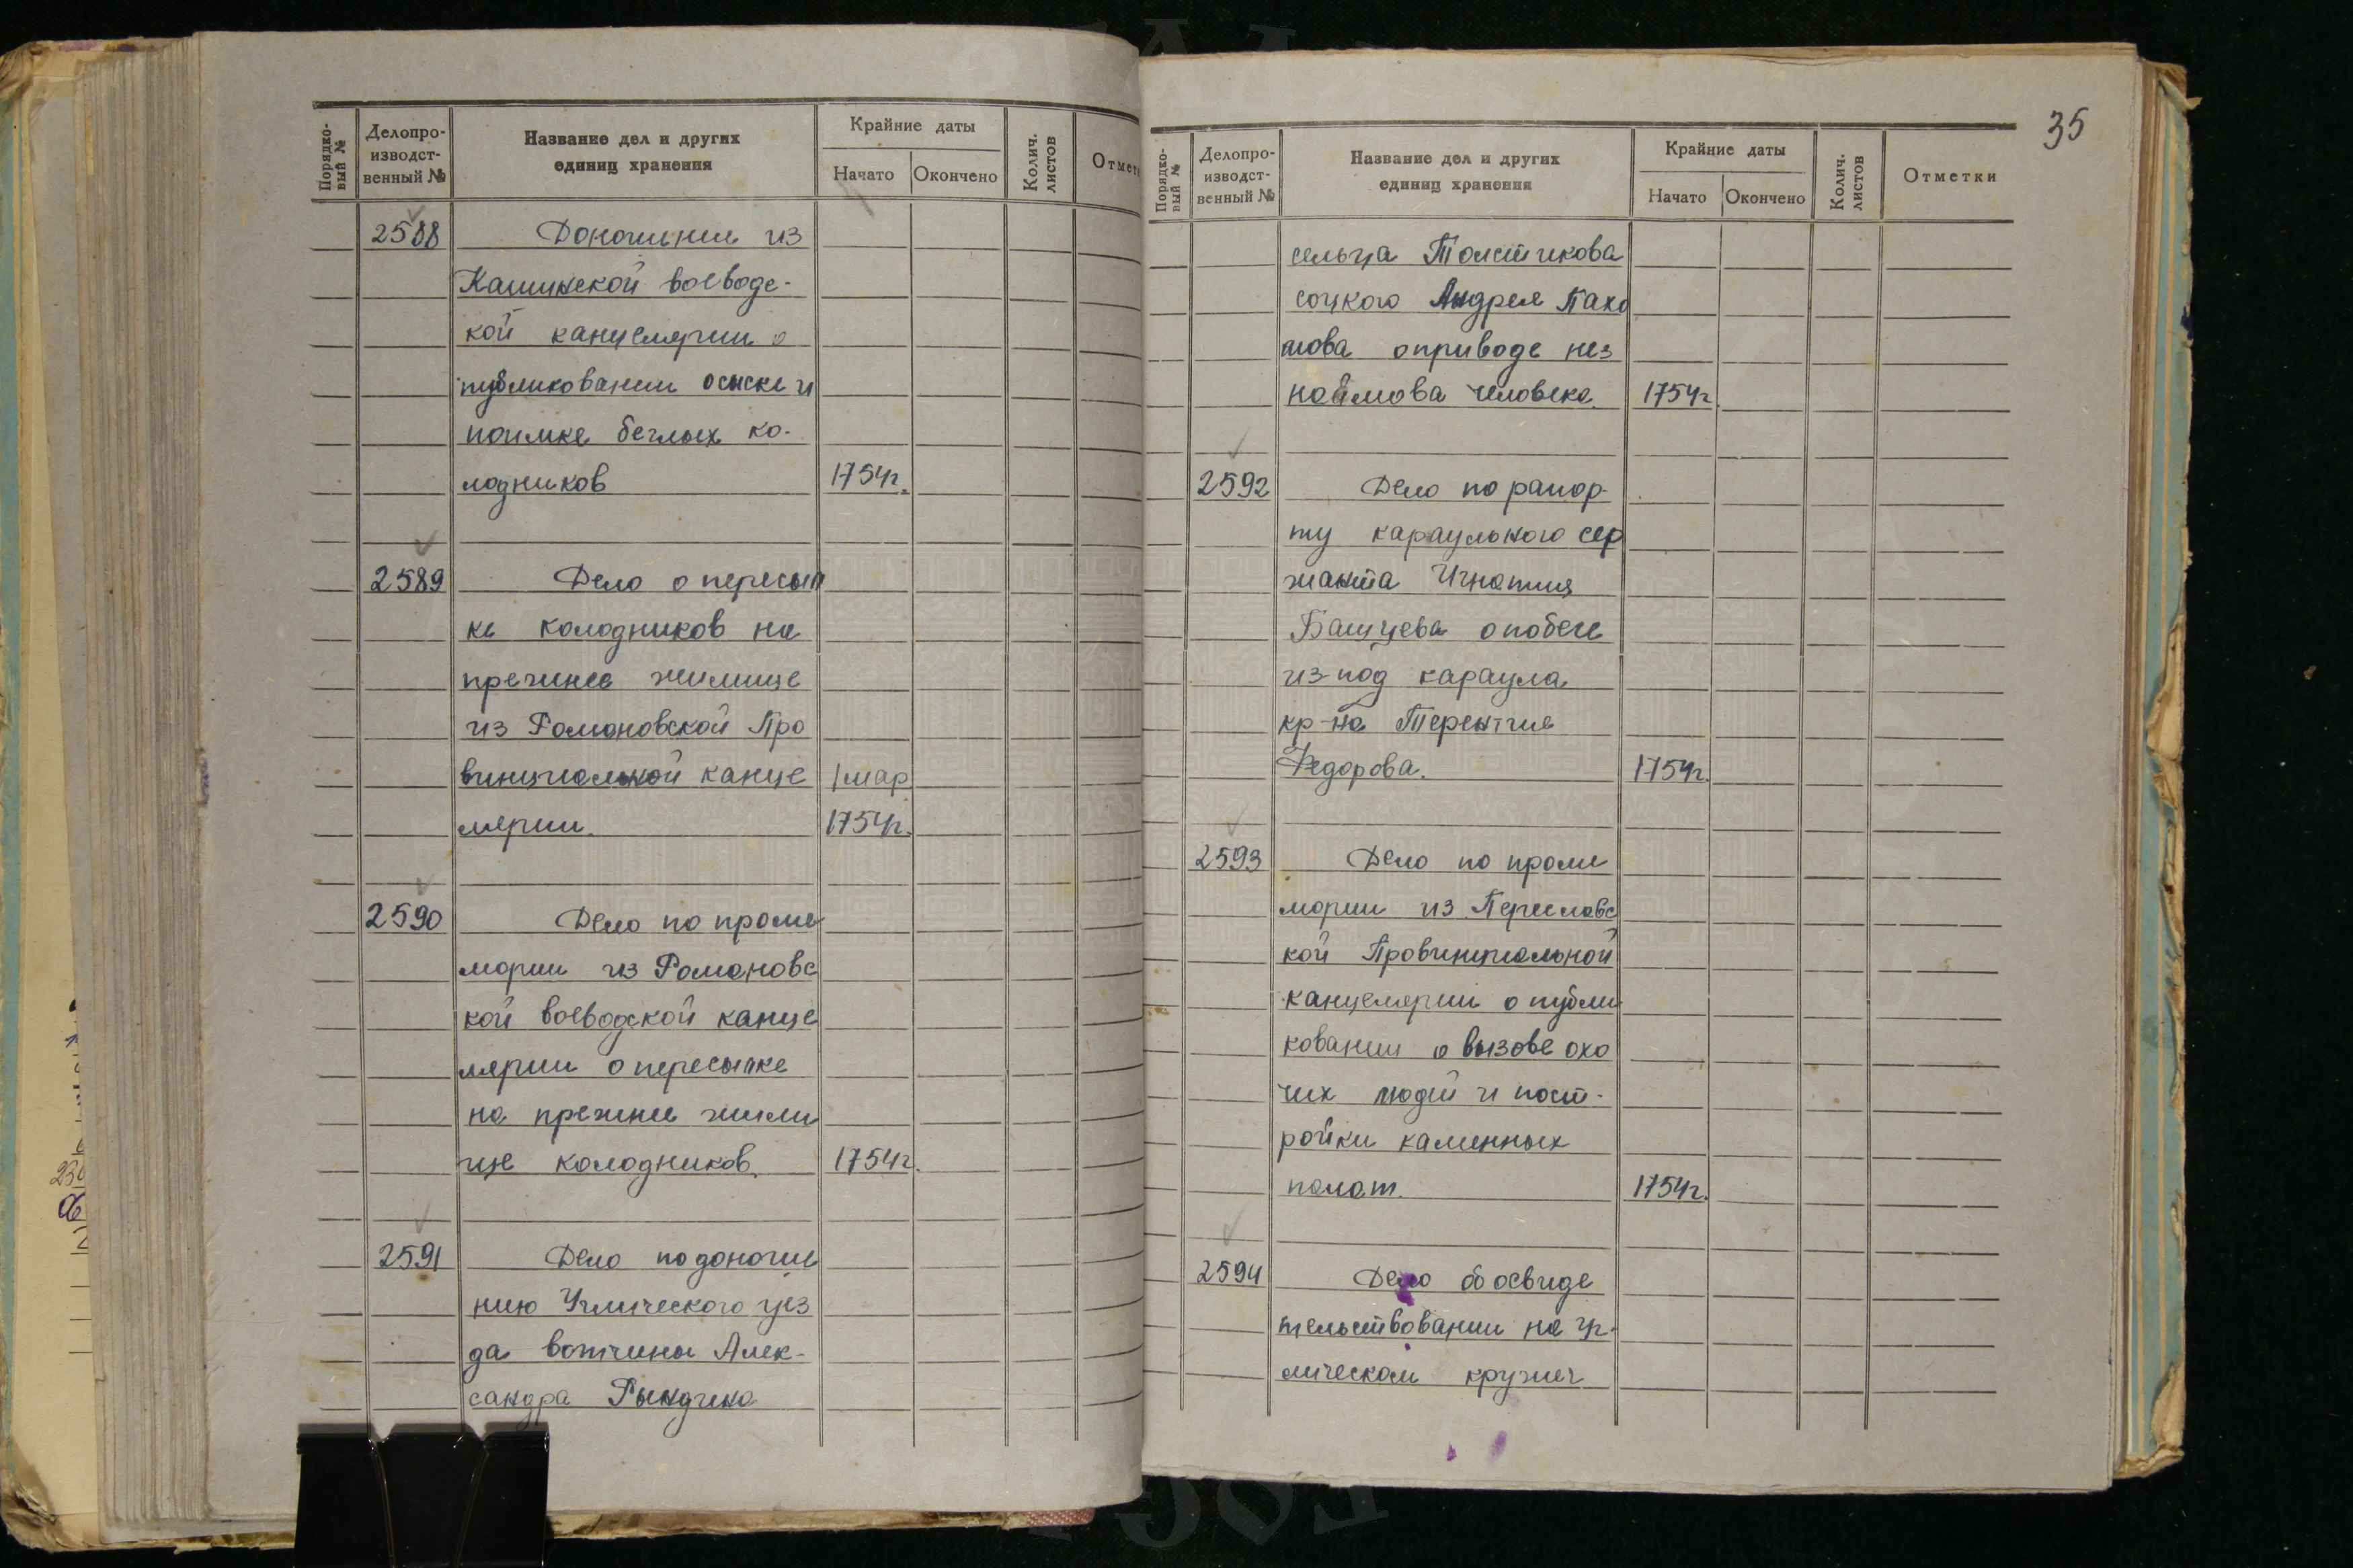 Порядко-
вый №
Делопро-
изводст-
венный №
Название дел и других
единиц хранения
Крайние даты
Начато
Окончено
Колич.
листов
Отмет
2588 Доношении из
Кашинской воеводс-
кой канцелярии о
публиковании о сыске и
поимке беглых ко-
лодников 1754г.
2589 Дело о пересыл
ке колодников на
прежнее жилище
из Романовской Про
винциальной канце 1 мар
лярии. 1754г.
2590 Дело по проме
мории из Романовс
кой воеводской канце
лярии о пересылке
на прежнее жили
ще колодников. 1754г.
2591 Дело по доноше
нию Углического уез
да вотчины Алек-
сандра Рындина
35
Порядко-
вый №
Делопро-
изводст-
венный №
Название дел и других
единиц хранения
Крайние даты
Начато
Окончено
Колич.
листов
Отметки
сельца Толстикова
соцкого Андрея Пахо
мова о приводе нез
наемова человека. 1754г.
2592 Дело по рапор-
ту караульного сер
жанта Игнатия
о побеге
из-под караула
кр-на Терентия
Федорова. 1754г.
2593 Дело по проме
мории из Переславс
кой Провинциальной
канцелярии о публи
ковании о вызове охо
чих людей и пост-
ройки каменных
палат. 1754г.
2594 Дело об освиде
тельствовании на уг-
лическом кружеч